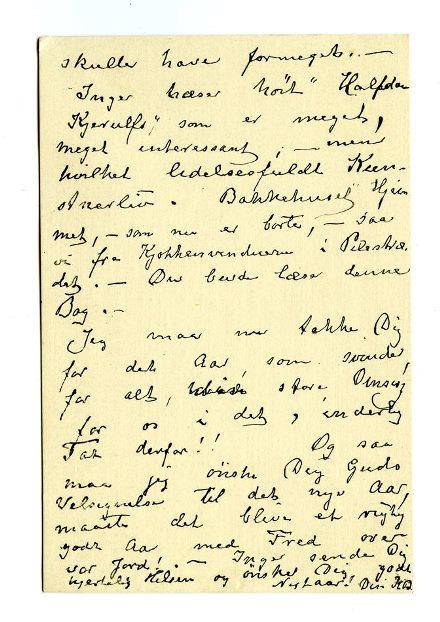 skulle have formeget. —
"Inger læser höit" Halfdan
Kjerulfs" som er meget,
meget interessant, — men
hvilket lidelsesfuldt Kun-
stnerliv. Bakkehuset Hjem
met, — som nu er borte, — saa
vi fra Kjökkenvinduerne i Pilestræ
det. — Du burde læse denne
Bog. —
Jeg maa nu takke Dig
for det Aar, som svinder,
for alt, store Omsorg
for os i det, inderlig
Tak derfor!! Og saa
maa jeg önske Dig Guds
Velsignelse til det nye Aar,
maatte det blive et rigtig
godt Aar med Fred over
vor Jord! — Inger sender Dig
hjertelig Hilsen og önsker Dig godt
Nytaar! Din